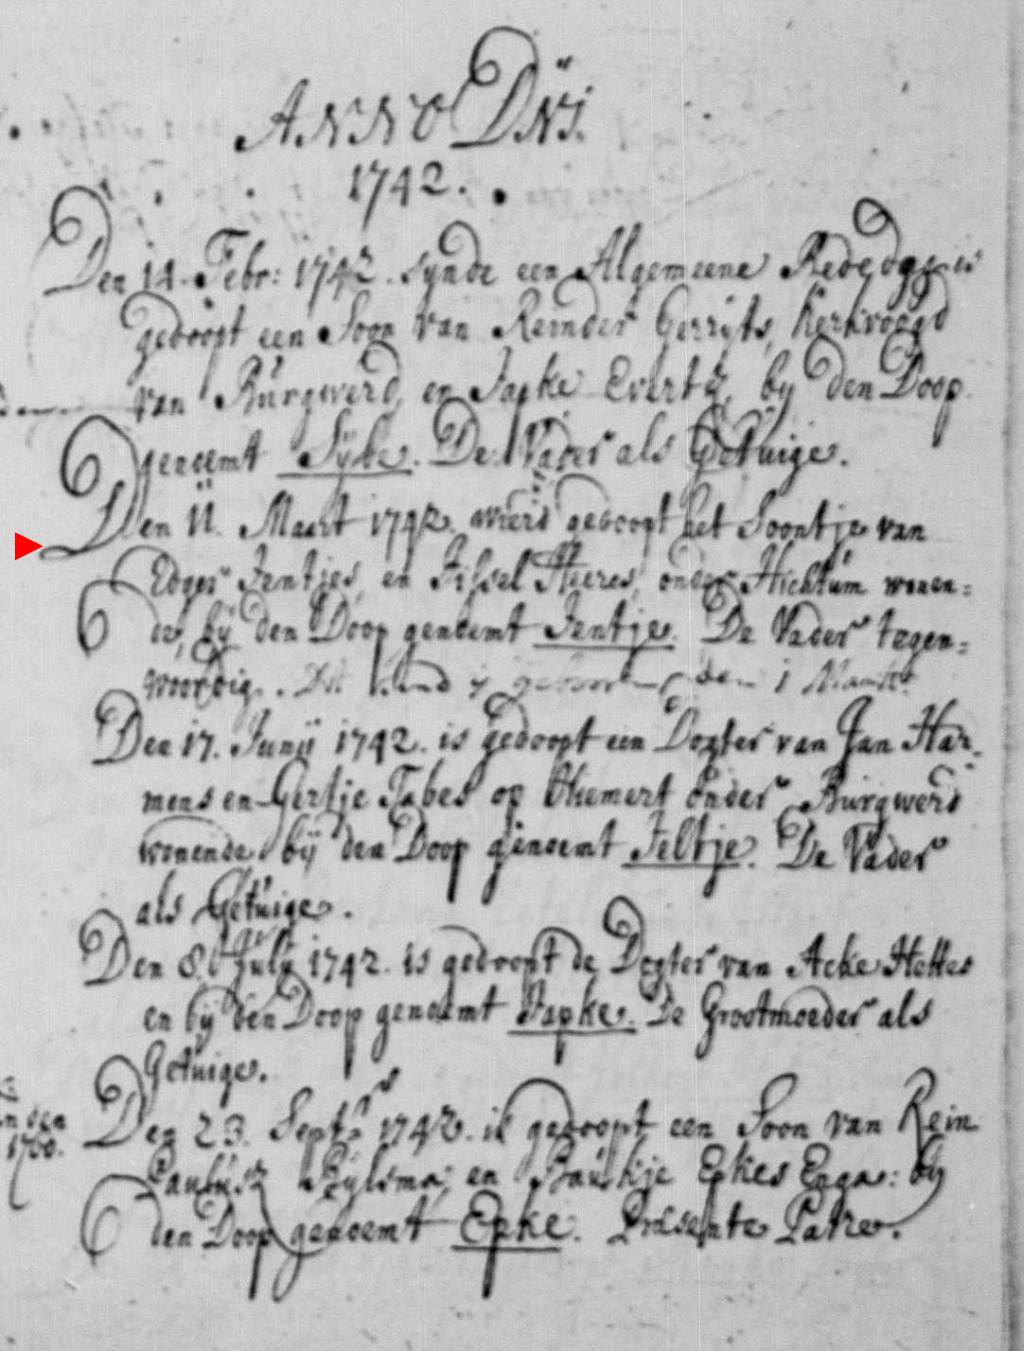 ANNO DNi.
1742.
Den 14. Febr: 1742. synde een Algemeene Bededag is
gedoopt een Soon van Reinder Gerryts, Kerkvoogd
van Burgwerd, en Japke Evertz, by den Doop
genoemt Sybe. De Vader als Getuige.
Den 11. Maart 1742. wierd gedoopt het Soontje van
Edger Jentjes, en Sjieres, onder Hichtum wonen=
de, by den Doop genoemt Jentje. De Vader tegen=
woordig. Dit kind is geboren den 1 Maart
Den 17. Junij 1742. is gedoopt een Dogter van Jan Har-
mens en Gertje Tabes op onder Burgwerd
wonende bij den Doop genoemt Jeltje. De Vader
als Getuige.
Den 8. July 1742. is gedoopt de Dogter van Acke Hettes
en bij den Doop genoemt Japke. De Grootmoeder als
Getuige.
Den 23. Septr 1742. is gedoopt een Soon van Rein
Paulusz Rylsma, en Baukje Epkes Enga: by
den Doop genoemt Epke. Præsente Patre.
1700.